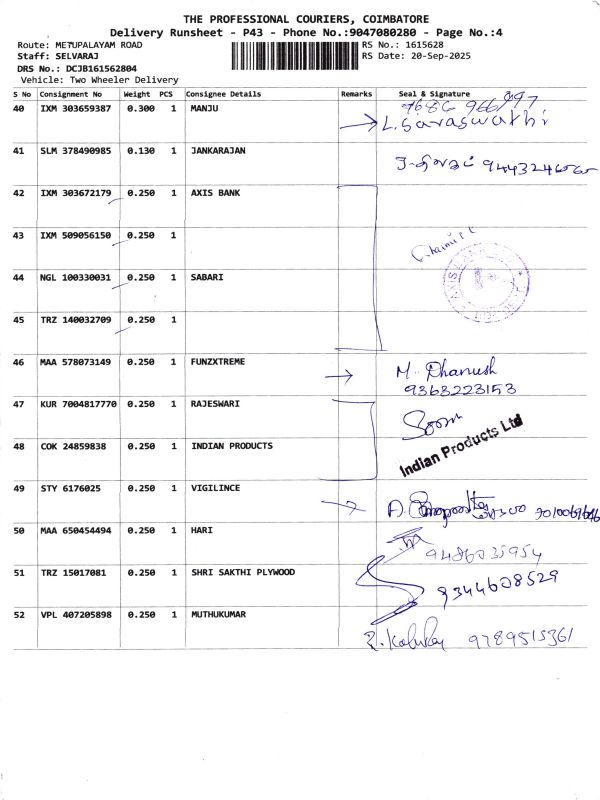 THE PROFESSIONAL COURIERS, COIMBATORE
Delivery Runsheet - P43 - Phone No.:9047080280 - Page No.:4
Route: METUPALAYAM ROAD RS No.: 1615628
Staff: SELVARAJ RS Date: 20-Sep-2025
DRS No.: DCJB161562804
Vehicle: Two Wheeler Delivery
S No Consignment No Weight PCS Consignee Details Remarks Seal & Signature
40 IXM 303659387 0.300 1 MANJU
L. Saraswathi
41 SLM 378490985 0.130 1 JANKARAJAN
42 IXM 303672179 0.250 1 AXIS BANK
43 IXM 509056150 0.250 1
44 NGL 100330031 0.250 1 SABARI
45 TRZ 140032709 0.250 1
46 MAA 578073149 0.250 1 FUNZXTREME M. Dhanush
9363223153
47 KUR 7004817770 0.250 1 RAJESWARI
Indian Products Ltd
48 COK 24859838 0.250 1 INDIAN PRODUCTS
49 STY 6176025 0.250 1 VIGILINCE
50 MAA 650454494 0.250 1 HARI
9486035954
51 TRZ 15017081 0.250 1 SHRI SAKTHI PLYWOOD 9344608529
52 VPL 407205898 0.250 1 MUTHUKUMAR
9789515361